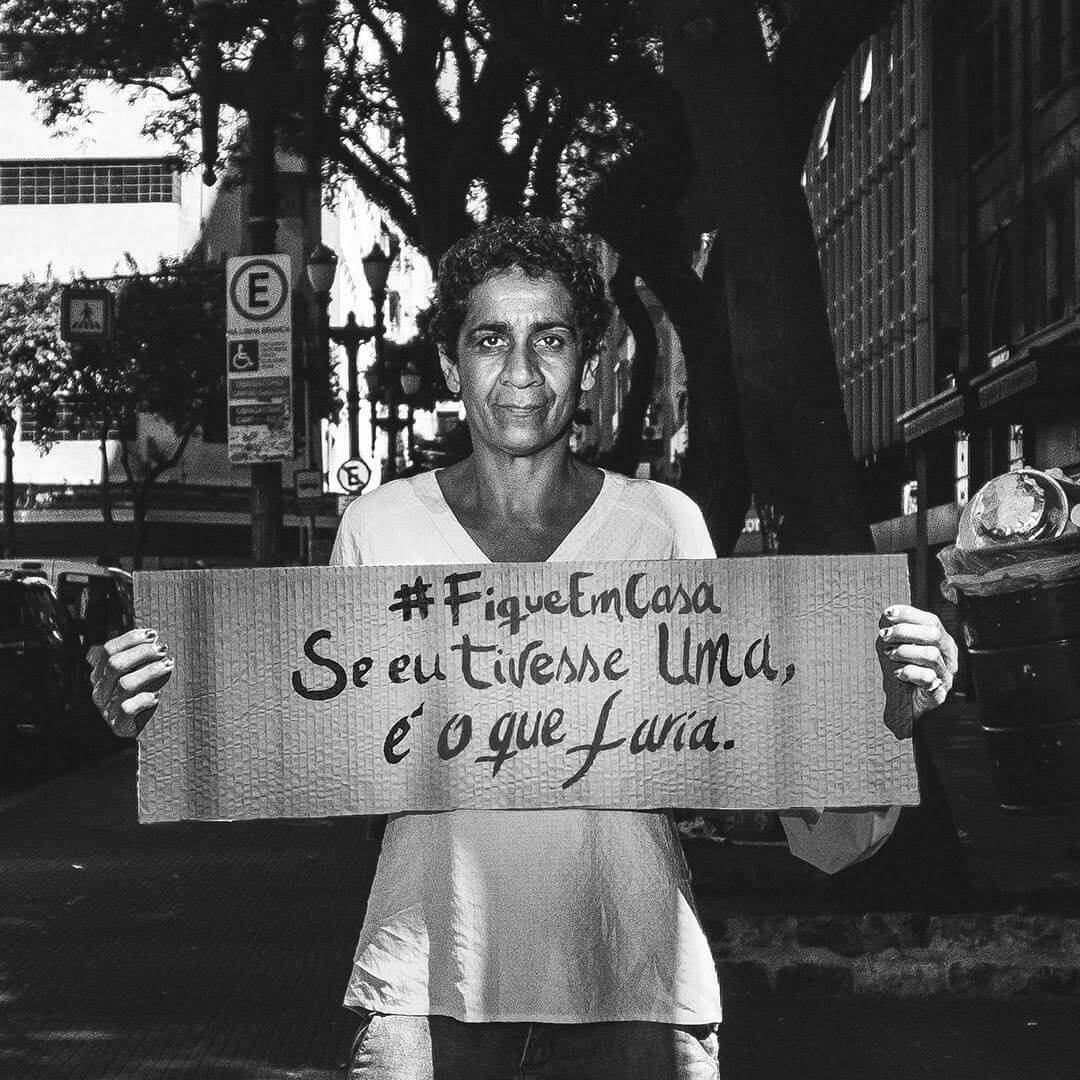 E
E
#FiqueEmCasa
Se eu tivesse Uma,
é o que faria.